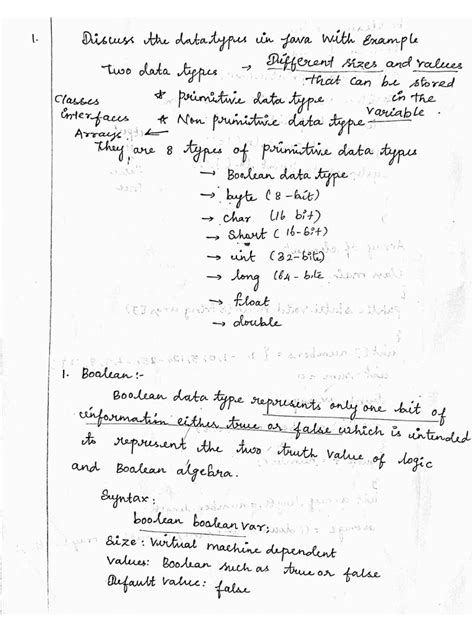 1. Discuss the datatypes in Java with Example
Two data types → Different sizes and values
that can be stored
in the
variable.
* primitive data type
* Non primitive data type
Classes
Interfaces
Arrays ←
They are 8 types of primitive data types
→ Boolean data type
→ byte (8-bit)
→ char (16 bit)
→ Short (16-bit)
→ int (32-bite)
→ long (64-bite
→ float
→ double
1. Boolean:-
Boolean data type represents only one bit of
information either true or false which is intended
to represent the two truth value of logic
and Boolean algebra.
Syntax:
boolean boolean var;
Size: Virtual machine dependent
Values: Boolean such as true or false
Default Value: false